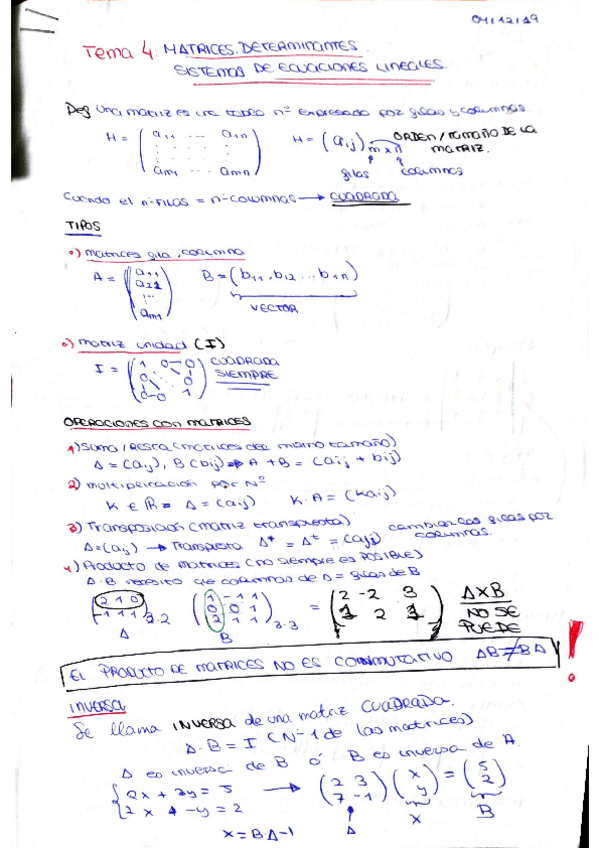 04/12/19
Tema 4: MATRICES. DETERMINANTES.
SISTEMAS DE ECUACIONES LINEALES.
Def una matriz es una tabla nº expresado por filas y columnas
H = ( a11 ... a1n ; am1 ... amn ) H = (aij) m x n ORDEN / TAMAÑO DE LA MATRIZ.
filas columnas
Cuando el nº FILAS = nº COLUMNAS → CUADRADA
TIPOS
•) matrices fila, columna
A = ( a11 a21 ... am1 ) B = (b11, b12 ... b1n)
VECTOR
•) matriz unidad (I)
I = ( 1 0-0 ; 0 0 ; 0-0 1 ) CUADRADA
SIEMPRE
OPERACIONES CON MATRICES
1) Suma / Resta (matrices del mismo tamaño)
A = (aij), B (bij) → A + B = (aij + bij)
2) multiplicación por Nº
K ∈ R = A = (aij) K·A = (kaij)
3) Transposición (matriz transpuesta) cambiar las filas por columnas.
A = (aij) → Transpuesta A* = At = (aji)
4) Producto de matrices (no siempre es POSIBLE)
A·B necesito que columnas de A = filas de B
( 2 1 0 ; -1 1 1 ) 3·2 ( 0 -1 1 ; 0 0 1 ; 2 1 1 ) 3·3 = ( 2 -2 3 ; 1 2 1 ) AXB
A B NO SE
PUEDE
EL PRODUCTO DE MATRICES NO ES CONMUTATIVO AB≠BA !
INVERSA
Se llama INVERSA de una matriz CUADRADA.
A·B = I (Nº 1 de las matrices)
A es inversa de B ó B es inversa de A.
{ 2x + 3y = 5 → ( 2 3 ; 7 -1 ) ( x ; y ) = ( 5 ; 2 )
- y = 2
A X B
X = B·A-1